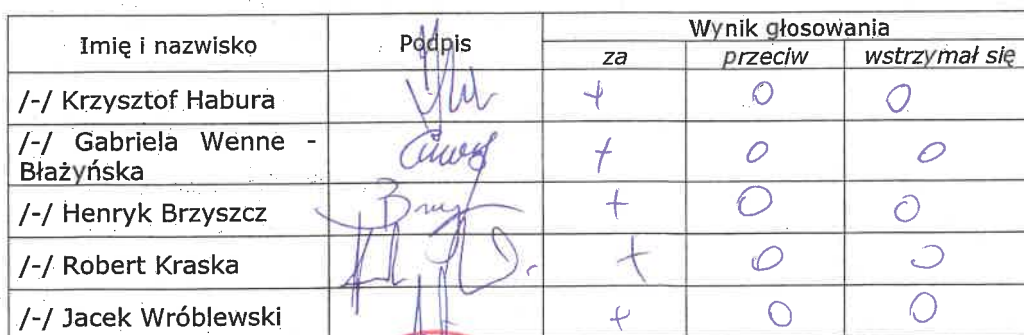 Imię i nazwisko Podpis Wynik głosowania
za przeciw wstrzymał się
/-/ Krzysztof Habura + O O
/-/ Gabriela Wenne -
Błażyńska + O O
/-/ Henryk Brzyszcz + O O
/-/ Robert Kraska + O O
/-/ Jacek Wróblewski + O O